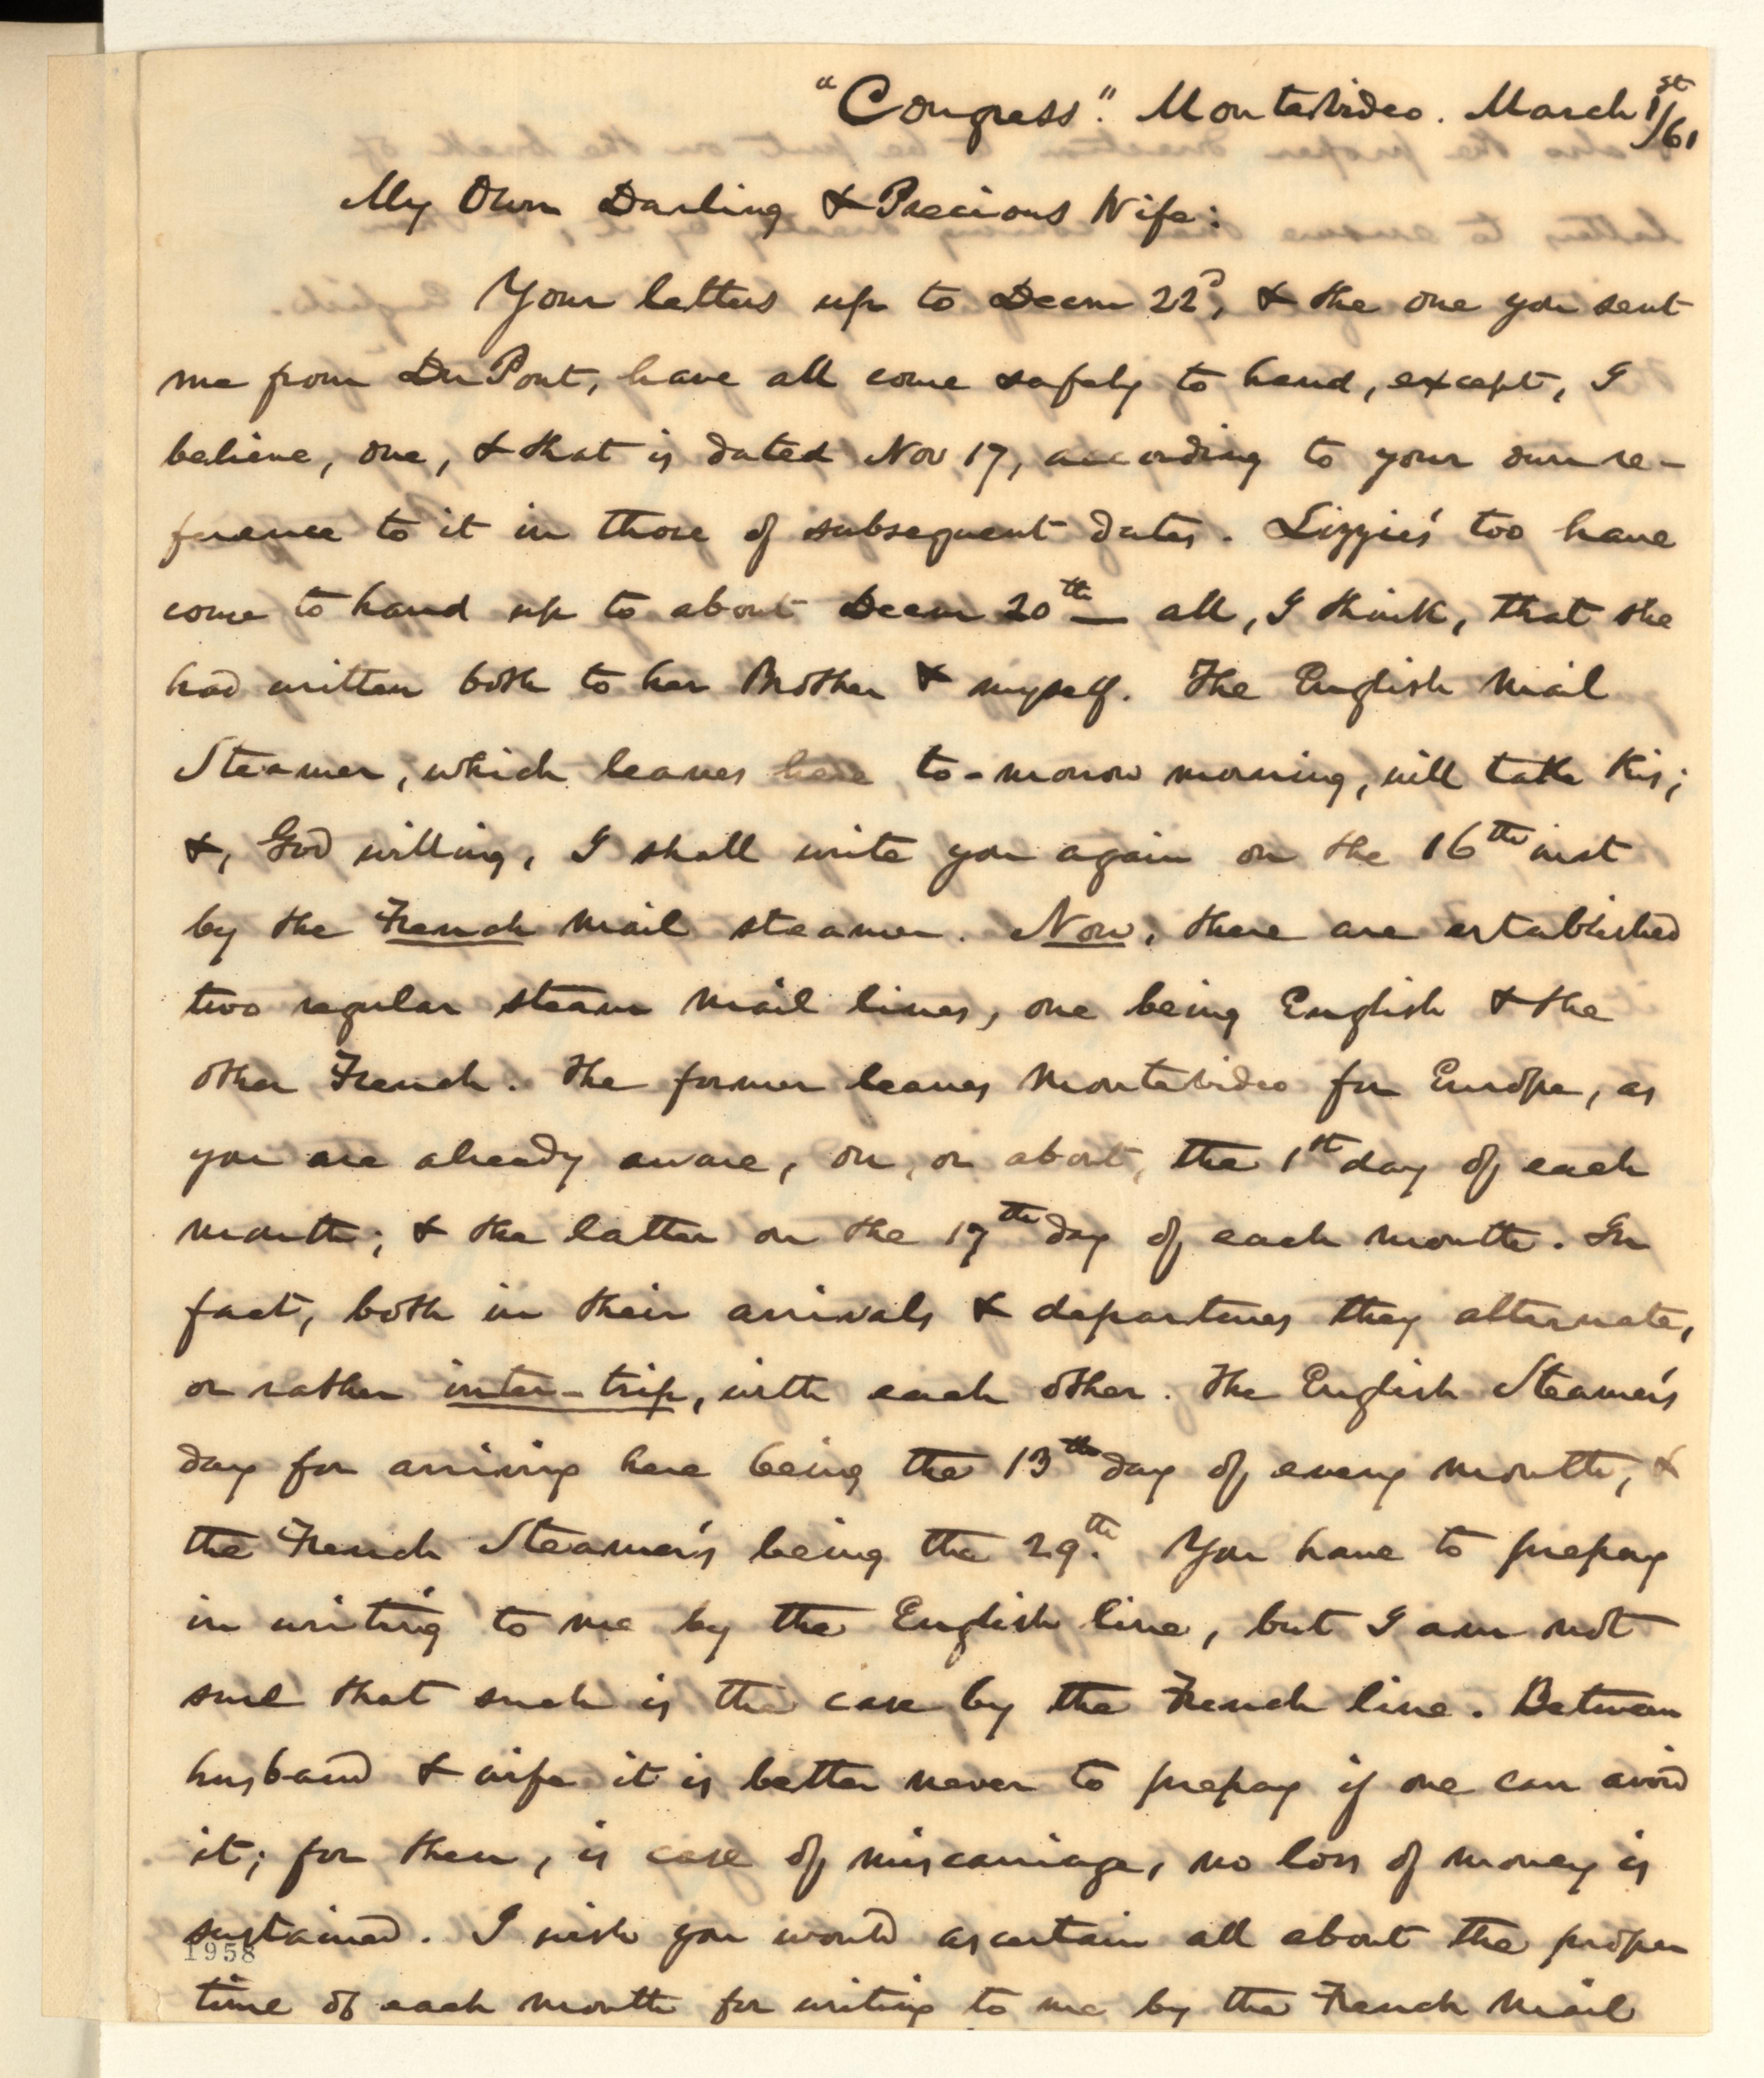 "Congress". Montevideo. March 1st/61
My Own Darling & Precious Wife:
Your letters up to Decm 22d, & the one you sent
me from DuPont, have all come safely to hand, except, I
believe, one, & that is dated Nov 17, according to your own re-
ference to it in those of subsequent dates. Lizzie's too have
come to hand up to about Decm 20th — all, I think, that she
had written both to her Brother & myself. The English Mail
Steamer, which leaves here to-morow morning, will take this;
&, God willing, I shall write you again on the 16th inst
by the French Mail steamer. Now, there are established
two regular steam mail lines, one being English & the
other French. The former leaves Montevideo for Europe, as
you are already aware, on, or about, the 1st day of each
month; & the latter on the 17th day of each month. In
fact, both in their arrivals & departures they alternate,
or rather inter-trip, with each other. The English Steamer's
day for arriving here being the 13th day of every month, &
the French Steamer's being the 29th. You have to prepay
in writing to me by the English line, but I am not
sure that such is the case by the French line. Between
husband & wife it is better never to prepay if one can avoid
it; for then, is case of miscarriage, no loss of money is
sustained. I wish you would ascertain all about the proper
1958
time of each month for writing to me by the French Mail